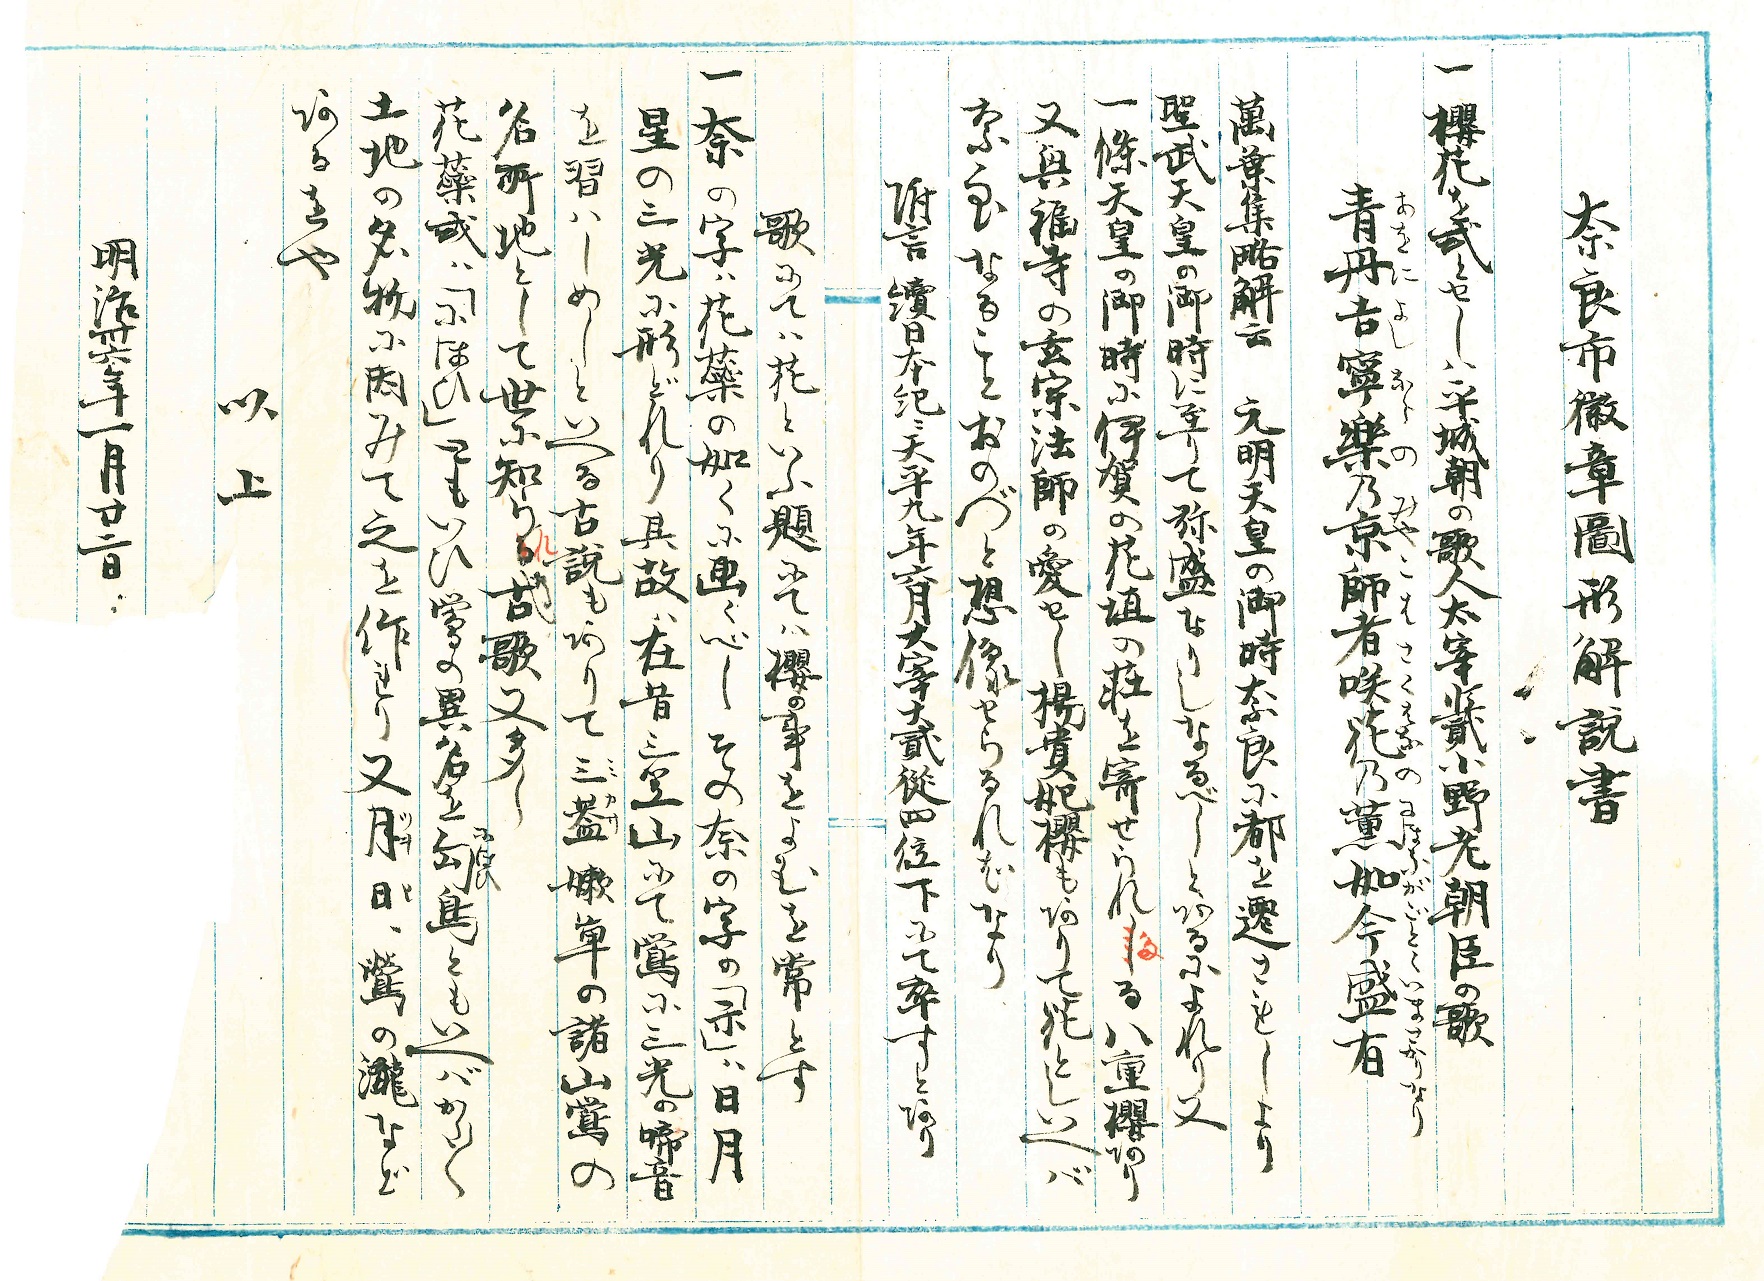 奈良市徽章圖形解説書
一櫻花を式とせしハ平城朝の歌人太宰少貳小野老朝臣の歌
あをによし ならの みやこは さくはなの にほふがごとくいまさかりなり
青丹吉寧樂乃京師者咲花乃薫如今盛有
萬葉集略解云 元明天皇の御時奈良に都を遷されしより
聖武天皇の御時に至りて弥盛なりしなるべしとあるによれり又
一條天皇の御時に伊賀の花垣の荘を寄せられし後る八重櫻あり
又興福寺の玄宗法師の愛せし楊貴妃櫻もありて花としいへバ
奈良なることおのづと想像せらるればなり
附言 續日本紀ニ天平九年六月大宰大貳從四位下にて卒すとあり
歌にてハ花といふ題にてハ櫻の事をよむを常とす
一奈の字ハ花蘂の如くに画くべし その奈の字の「示」ハ日月
星の三光に形どれり其故ハ在昔三笠山にて鶯に三光の啼音
を習ハしめしといへる古説もありて三蓋(ミカサ)嫩草の諸山鶯の
名所地として世に知られ古歌又多し
花蘂或ハ「にほひ」ともいひ鶯の異名を匂鳥(にほひ)ともいへバかたく
土地の名物に因みて之を作れり又月(ツキ)日(ヒ)、鶯の瀧など
あるをや
以上
明治卅六年一月廿二日